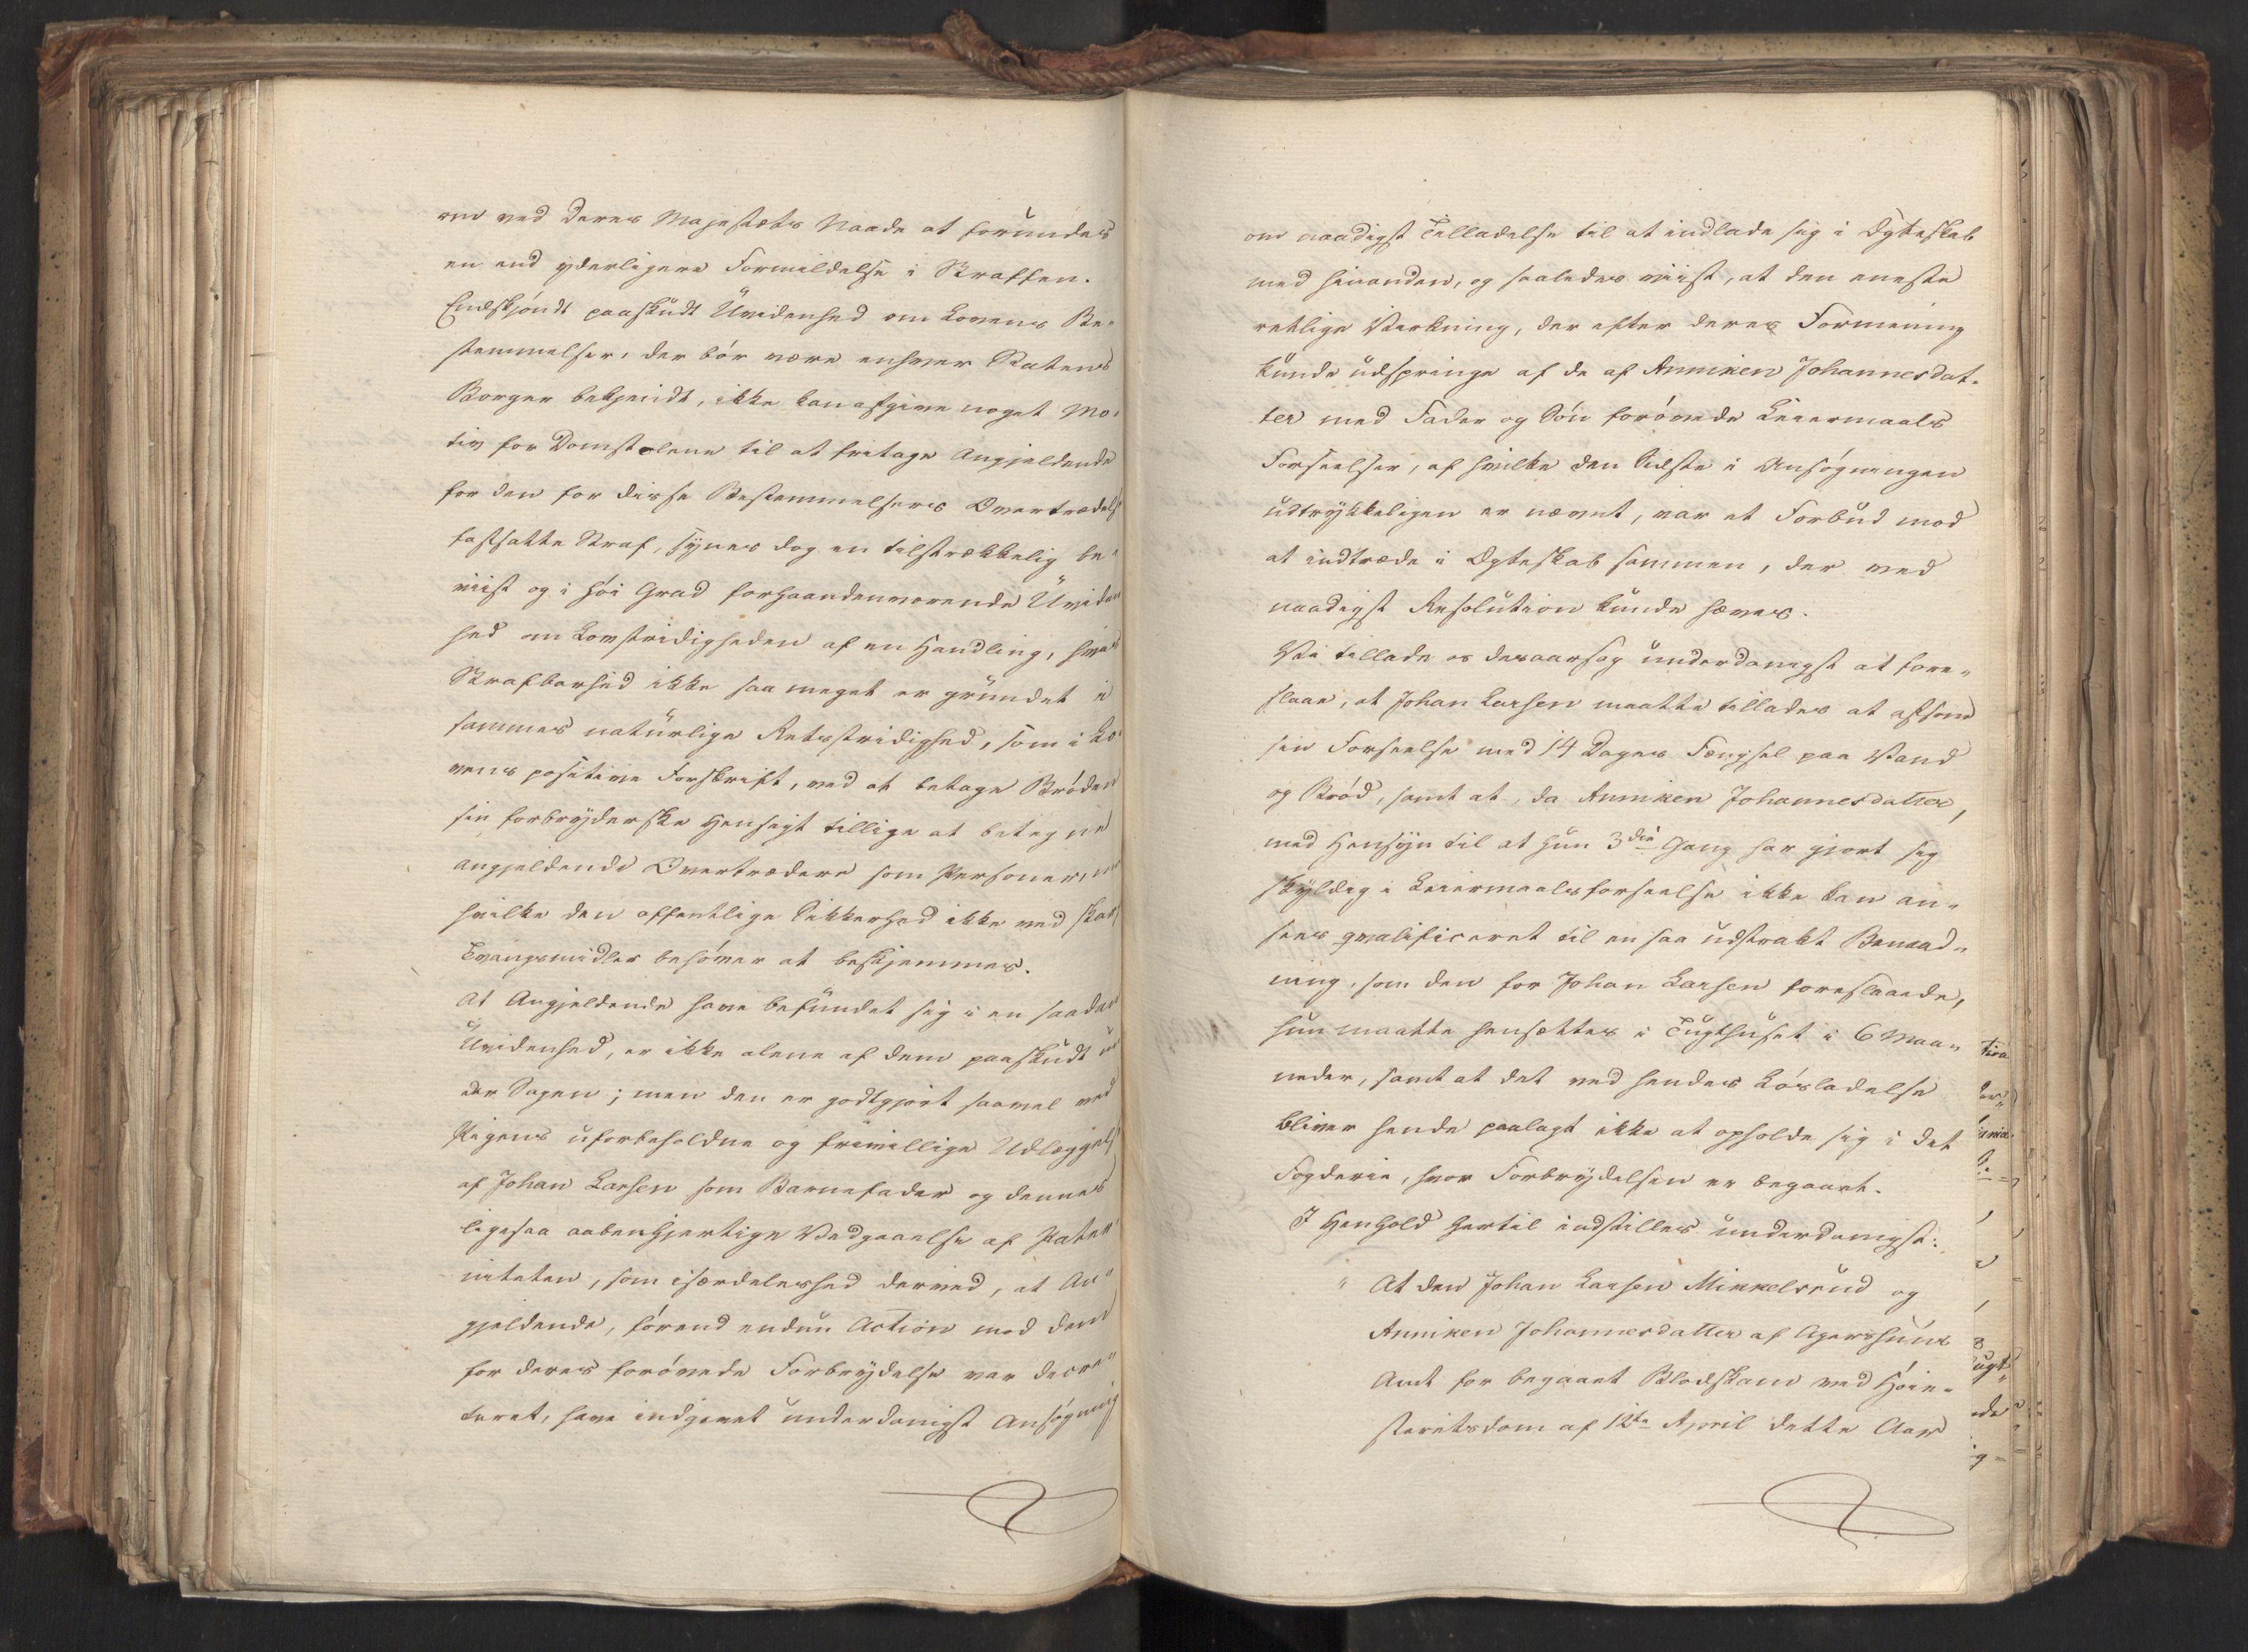 om ved Deres Majestæts Naade at forundes
en end yderligere Formildelse i Straffen.
Endskjøndt paaskudt Uvidenhed om Lovens Be-
stemmelser, der bør være enhver Statens
Borger bekjendt, ikke kan afgive noget Mo-
tiv for Domstolene til at fritage Angjeldende
for den for disse Bestemmelsers Overtrædelse
fastsatte Straf, synes dog en tilstrækkelig be-
viist og i høi Grad forhaandenværende Uviden
hed om Lovstridigheden af en Handling, hvis
Strafbarhed ikke saa meget er grundet i
sammes naturlige Retsstridighed, som i Lo-
vens positive Forskrift, ved at betage Brøden
sin forbryderske Hensigt tillige at betegne
angjeldende Overtrædere som Personer, mod
hvilke den offentlige Sikkerhed ikke ved
Tvangsmidler behøver at beskjermes.
At Angjeldende have befundet sig i en saadan
Uvidenhed, er ikke alene af dem paaskudt un
der Sagen; men den er godtgjort saavel ved
Pigens uforbeholdne og frivillige Udlæggelse
af Johan Larsen som Barnefader og dennes
ligesaa aabenhjertige Vedgaaelse af Pater-
niteten, som isærdeleshed derved, at An-
gjeldende, førend endnu Action mod dem
for deres forøvede Forbrydelse var decre-
teret, have indgivet underdanigst Ansøgning
om naadigst Tilladelse til at indlade sig i Ægteskab
med hinanden, og saaledes viist, at den eneste
retlige Virkning, der efter deres Formening
kunde udspringe af de af Anniken Johannesdat-
ter med Fader og Søn forøvede Leiermaals
Forseelser, af hvilke den Sidste i Ansøgningen
udtrykkeligen er nævnt, var et Forbud mod
at indtræde i Ægteskab sammen, der ved
naadigst Resolution kunde hæves.
Vi tillade os desaarsag underdanigst at fore-
slaae, at Johan Larsen maatte tillades at afsone
sin Forseelse med 14 Dages Fængsel paa Vand
og Brød, samt at, da Anniken Johannesdatter,
med Hensyn til at hun 3die Gang har gjort sig
skyldig i Leiermaalsforseelse ikke kan an-
sees qvalificeret til en saa udstrakt Benaad-
ning, som den for Johan Larsen foreslaaede,
hun maatte hensættes i Tugthuset i 6 Maa-
neder, samt at det ved hendes Løsladelse
bliver hende paalagt ikke at opholde sig i det
Fogderie, hvor Forbrydelsen er begaaet.
I Henhold hertil indstilles underdanigst:
" At den Johan Larsen Mikkelsrud og
Anniken Johannesdatter af Agershuus
Amt for begaaet Blodskam ved Høie-
steretsdom af 12te April dette Aar